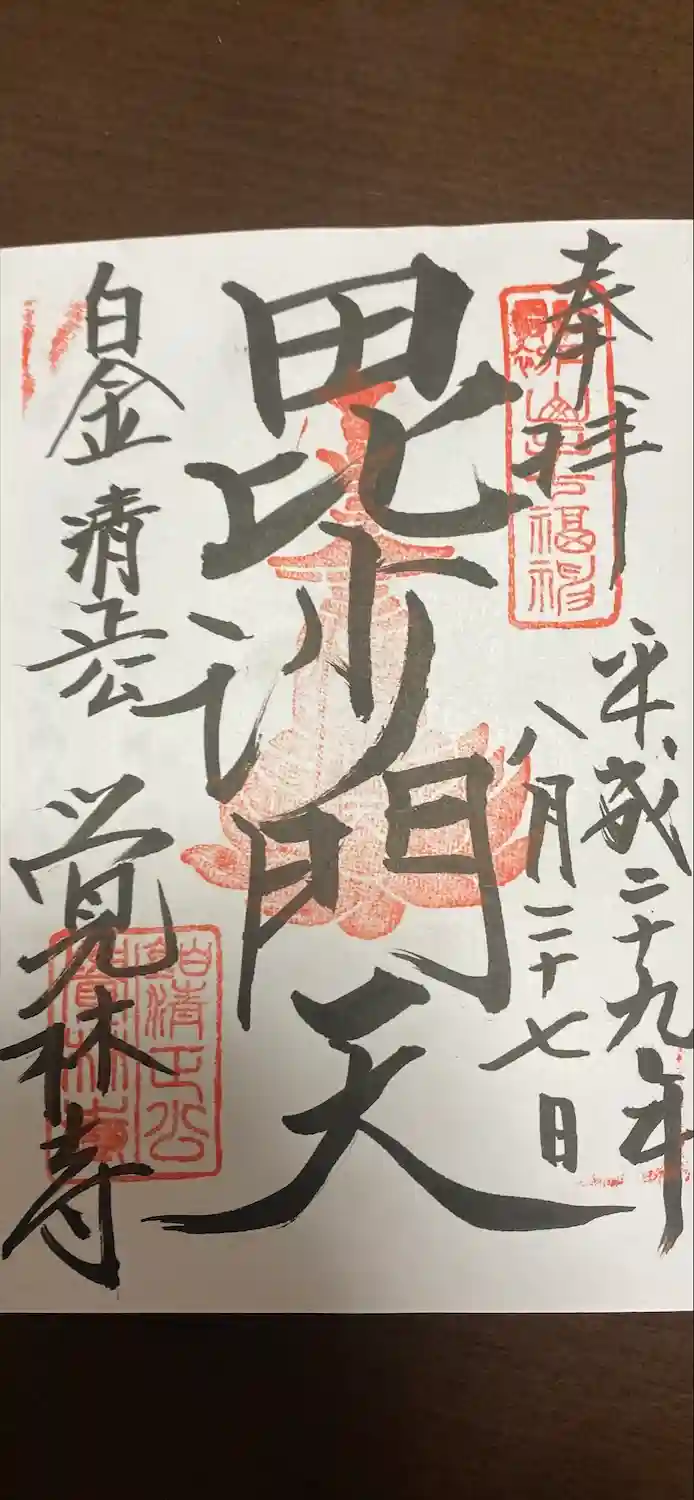 奉拝
平成二十九年
八月二十七日
毘沙門天
白金 清正公
覚林寺
白金清正公
覺林寺